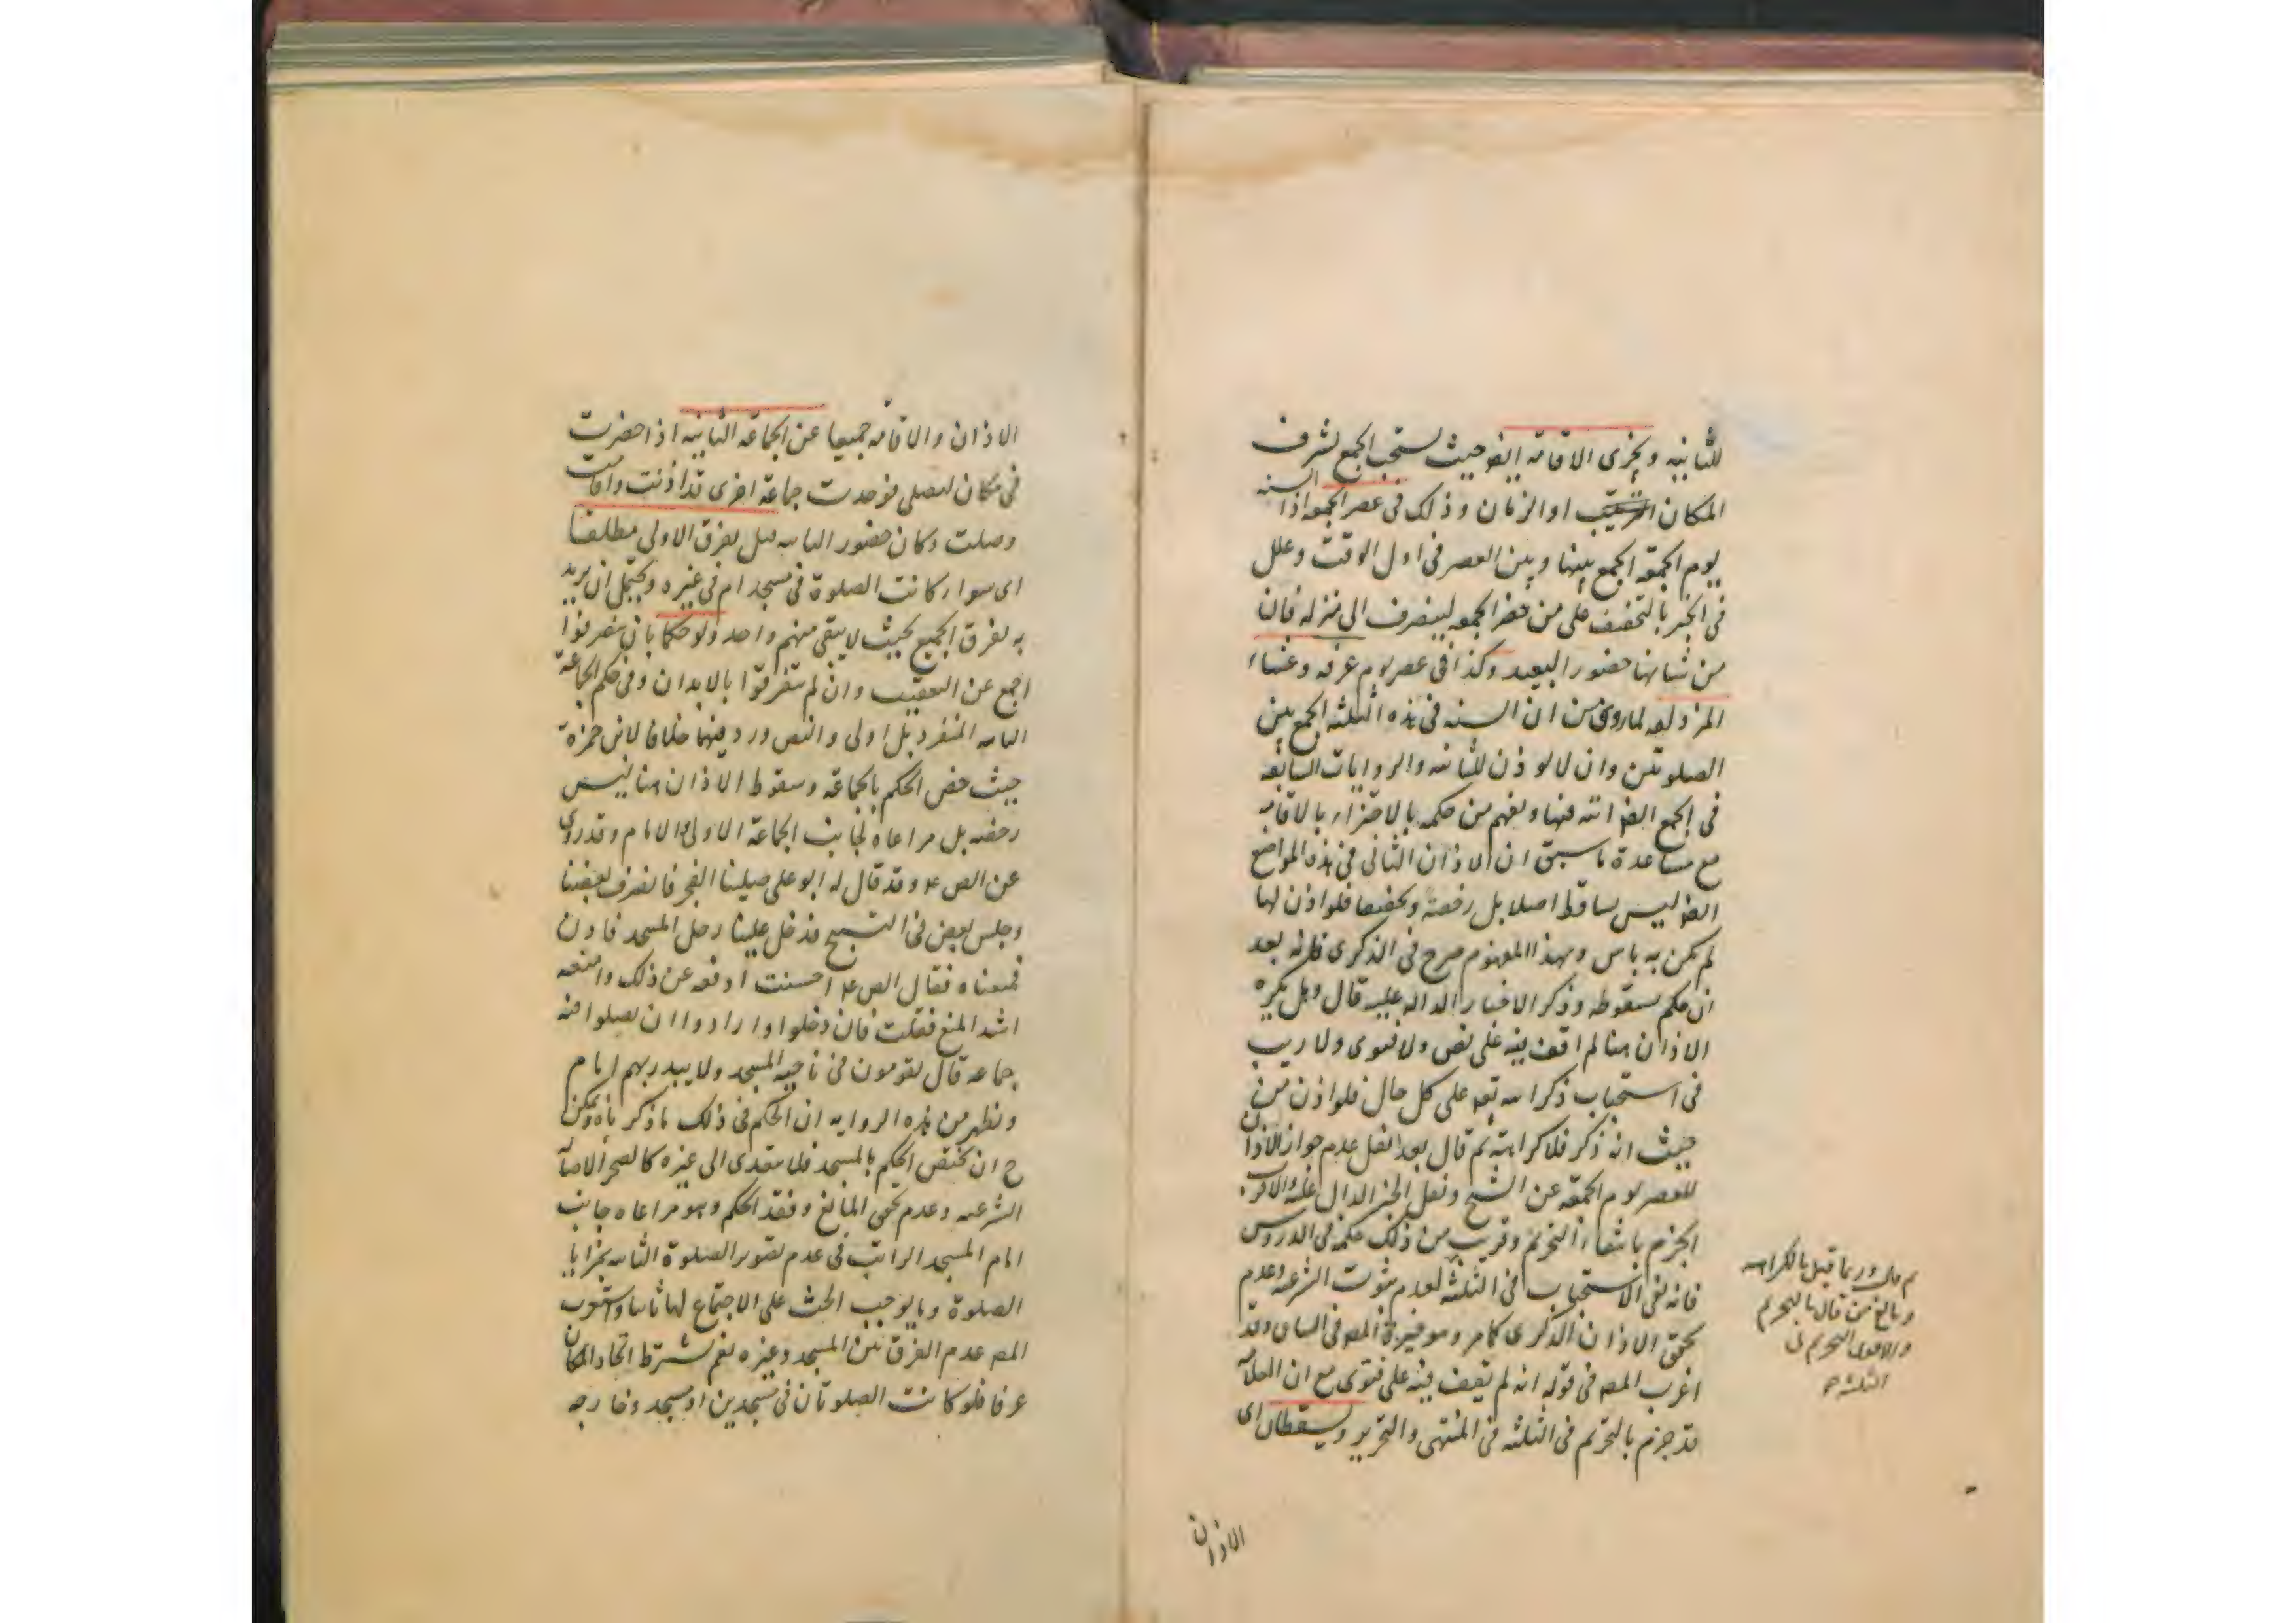 للثانيه ويجزى الاقامة ايضا حيث يستحب الجمع لشرف
المكان او الزمان وذلك فى عصر الجمعه اذا السنه
يوم الجمعة الجمع بينها وبين العصر فى اول الوقت وعلل
فى الخبر بالتخفيف على من حضر الجمعه لينصرف الى منزله فان
من شانها حضور البعيد وكذا فى عصر يوم عرفه وعشاء
المزدلفه لما روى من ان السنه فى هذه الثلثه الجمع بين
الصلوتين وان لا يوذن للثانيه والروايات السابقه
فى الجمع ايضا اتيه فيها ويفهم من حكمه بالاجتزاء بالاقامه
مع مساعدة ما سبق ان الاذان الثانى فى هذه المواضع
ايضا ليس بساقط اصلا بل رخصة وتخفيفا فلو اذن لها
لم يكن به باس وبهذا المفهوم صرح فى الذكرى فانه بعد
ان حكم بسقوطه وذكر الاخبار الداله عليه قال وهل يكره
الاذان هنا لم اقف فيه على نص ولا فتوى ولا ريب
فى استحباب ذكر الله تعه على كل حال فلو اذن من
حيث انه ذكر فلا كراهته ثم قال بعد نقل عدم جواز الاذان
للعصر يوم الجمعة عن الشيخ ونقل الخبر الدال عليه والاقرب
الجزم بانتفاء التحريم وقريب من ذلك حكمه فى الدروس
فانه نفى الاستحباب فى الثلثه لعدم ثبوت الشرعيه وعدم
تحقق الاذان الذكرى كما مر وهو خيرة المص فى البيان وقد
اغرب المص فى قوله انه لم يقف فيه على فتوى مع ان العلامه
قد جزم بالتحريم فى الثلثه فى المنتهى والتحرير ويسقطان اى
ثم قال وربما قيل بالكراهه
وبالغ من قال بالتحريم
والاقوى التحريم فى
الثلثه
الاذان
الاذان والاقامه جميعا عن الجماعة الثانيه اذا حضرت
فى مكان لتصلى فوجدت جماعة اخرى قد اذنت واقامت
وصلت وكان حضور الثانيه قبل تفرق الاولى مطلقا
اى سواء كانت الصلوة فى مسجد ام فى غيره ويحتمل ان يريد
به تفرق الجميع بحيث لا يبقى منهم واحد ولو حكما بان يتفرقوا
اجمع عن التعقيب وان لم يتفرقوا بالابدان وفى حكم الجماعة
الثانيه المنفرد بل اولى والنص ورد فيهما خلافا لابن حمزة
حيث خص الحكم بالجماعة وسقوط الاذان هنا ليس
رخصه بل مراعاه لجانب الجماعة الاولى والامام وقد روى
عن الص ع وقد قال له ابو على صلينا الفجر فانصرف بعضنا
وجلس بعض فى التسبيح فدخل علينا رجل المسجد فاذن
فمنعناه فقال الص ع احسنت ادفعه عن ذلك وامنعه
اشد المنع فقلت فان دخلوا وارادوا ان يصلوا فيه
جماعه قال يقومون فى ناحيه المسجد ولا يبدر بهم امام
ويظهر من هذه الروايه ان الحكم فى ذلك ما ذكرناه ويمكن
ح ان يختص الحكم بالمسجد فلا يتعدى الى غيره كالصحراء لاصالة
الشرعيه وعدم تحقق المانع وفقد الحكم وهو مراعاه جانب
امام المسجد الراتب فى عدم تصوير الصلوة الثانيه بمزايا
الصلوة وما يوجب الحث على الاجتماع لها ثانيا واستقرب
المص عدم الفرق بين المسجد وغيره نعم يشترط اتحاد المكان
عرفا فلو كانت الصلوتان فى مسجدين او مسجد وخارجه